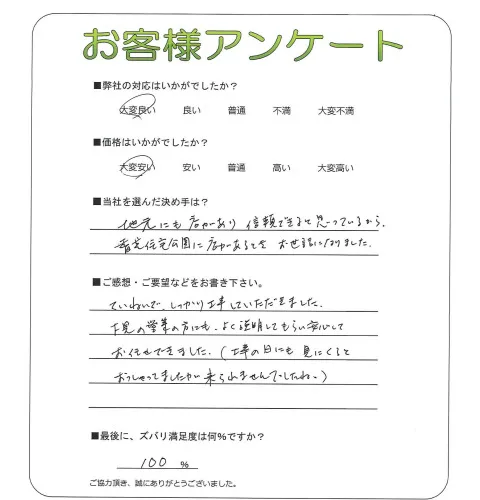 お客様アンケート
■弊社の対応はいかがでしたか?
大変良い 良い 普通 不満 大変不満
■価格はいかがでしたか?
大変安い 安い 普通 高い 大変高い
■当社を選んだ決め手は?
地元にも店があり 信頼できると思っているから。
住宅公園に店があるときも お世話になりました。
■ご感想・ご要望などをお書き下さい。
ていねいで、しっかり工事していただきました。
下見の営業の方にも、よく説明してもらい安心して
お任せできました。(工事の日にも見にくると
おっしゃってましたが来られませんでしたね。)
■最後に、ズバリ満足度は何%ですか?
100 %
ご協力頂き、誠にありがとうございました。